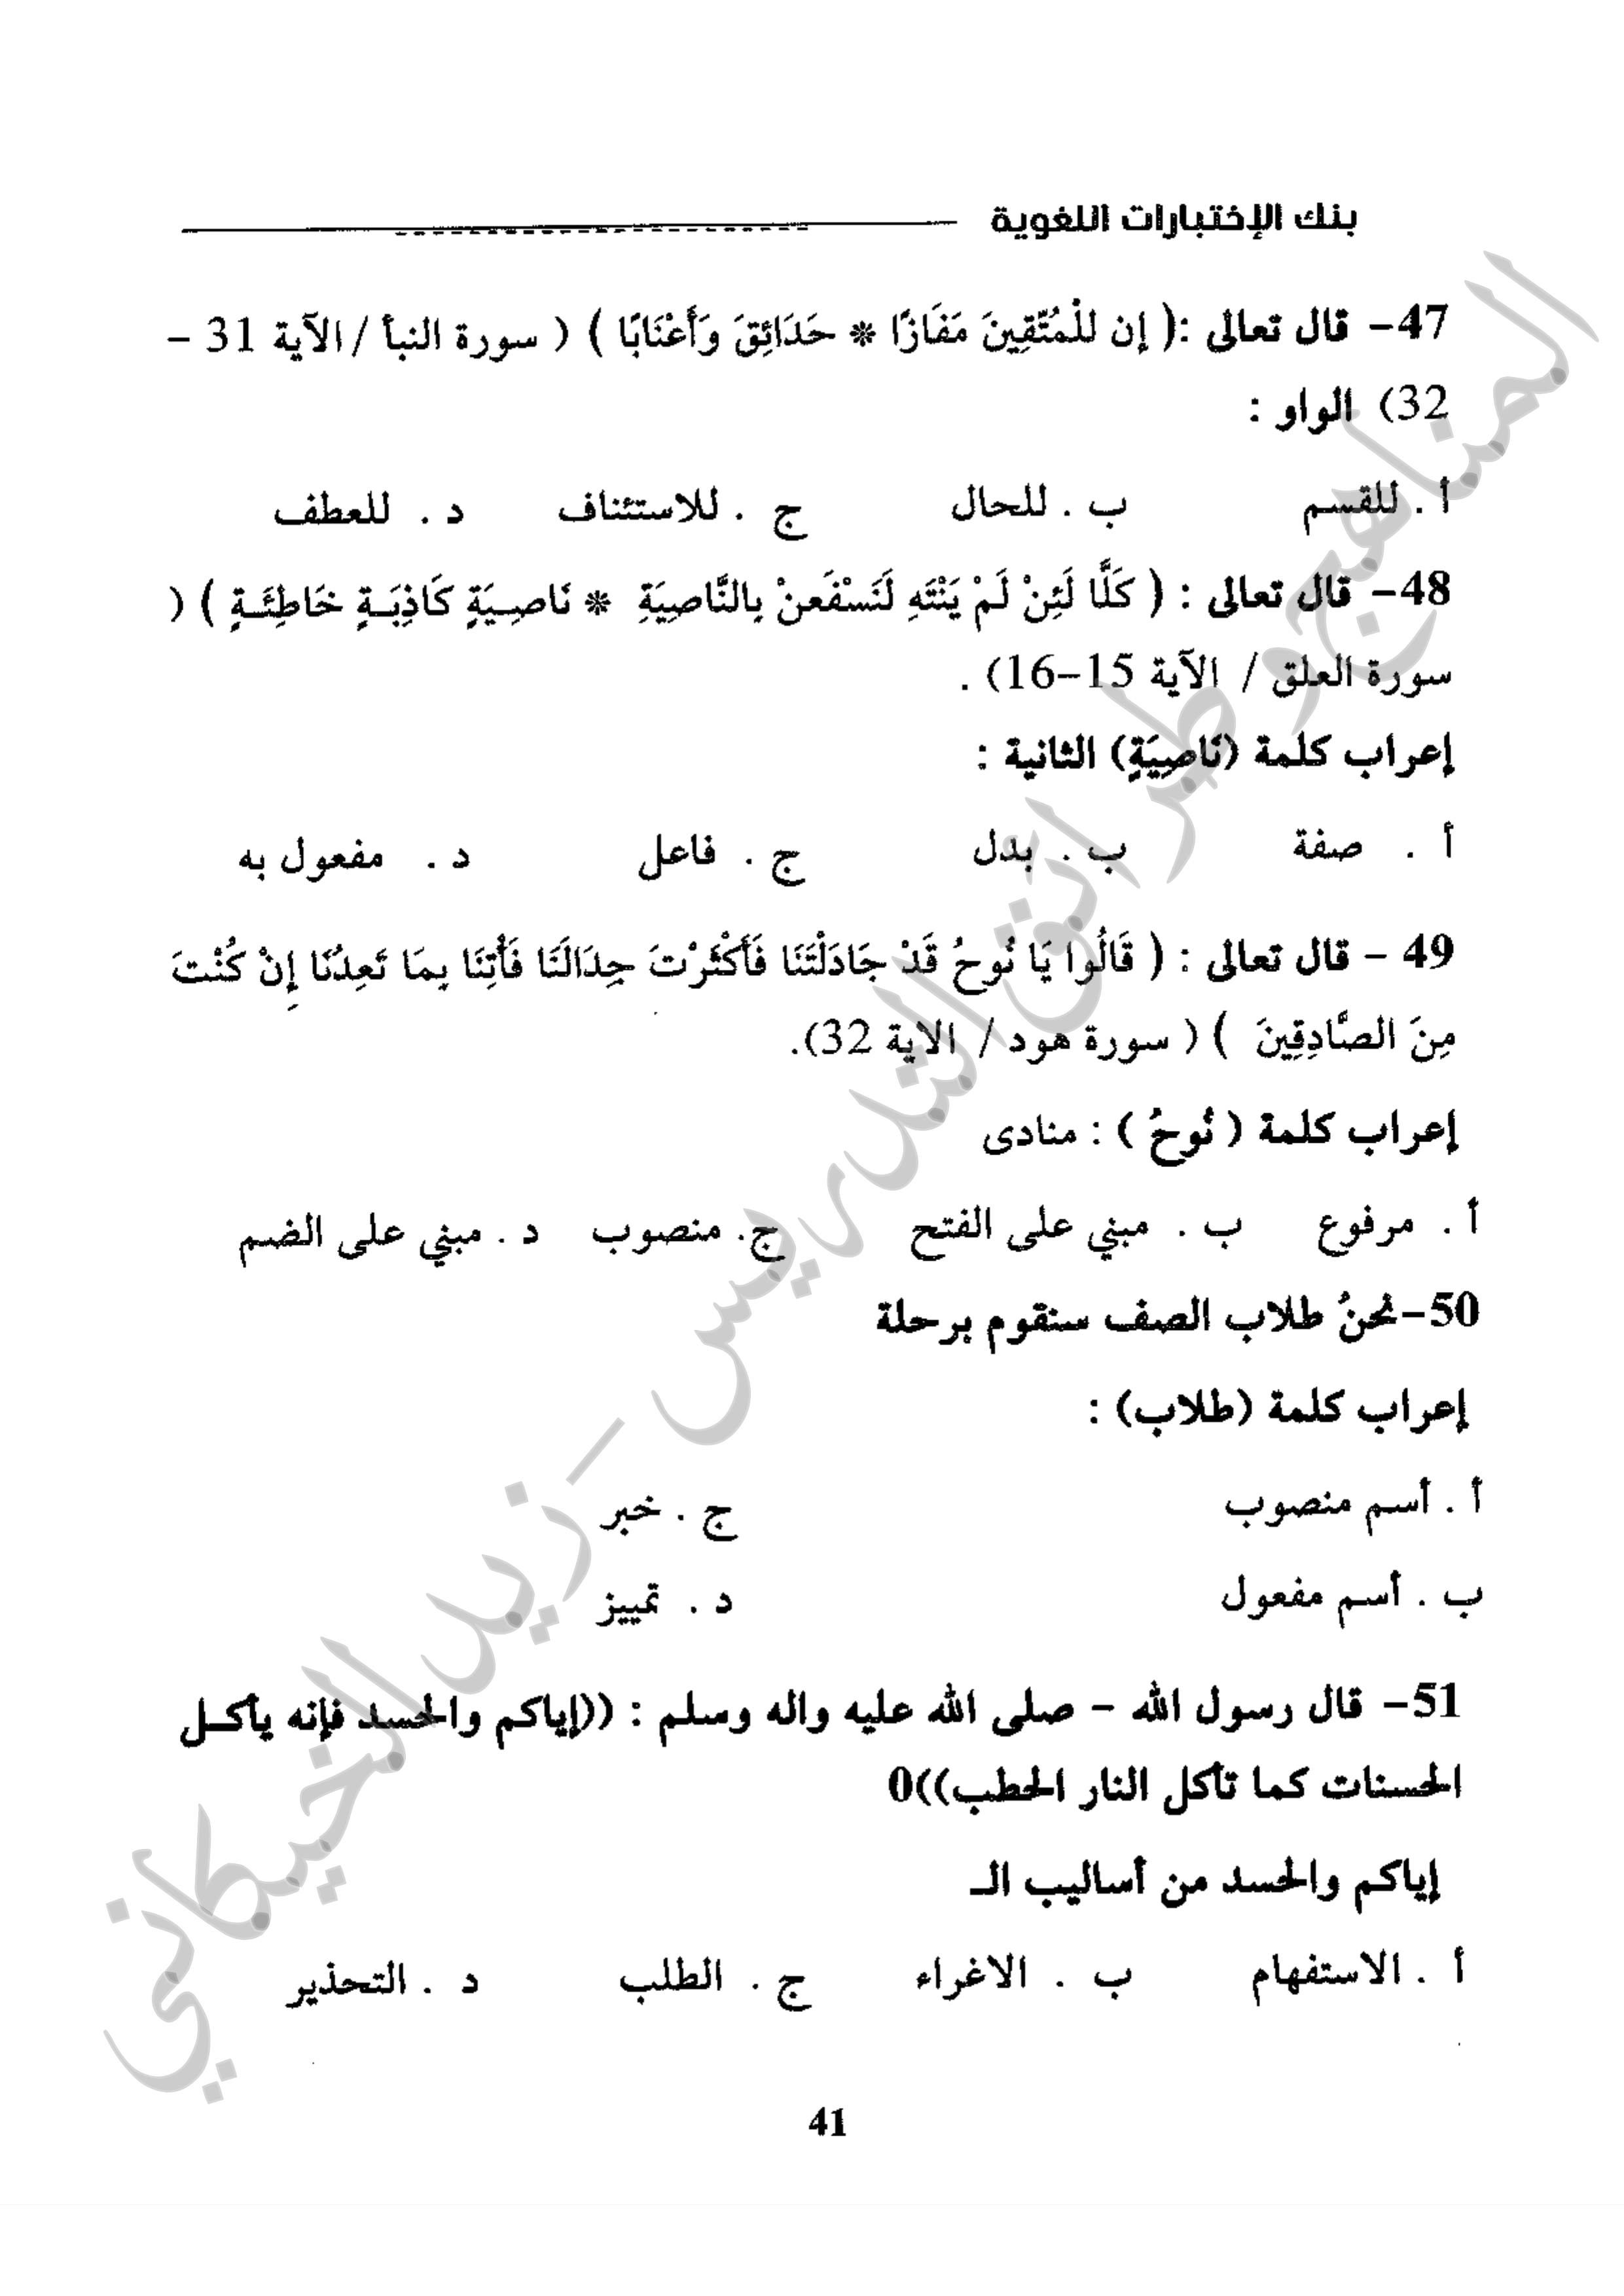 بنك الإختبارات اللغوية
47- قال تعالى :( إن للْمُتَّقِينَ مَفَازًا * حَدَائِقَ وَأَعْنَابًا ) ( سورة النبأ / الآية 31 -
32) الواو :
أ . للقسم ب . للحال ج . للاستئناف د . للعطف
48- قال تعالى : ( كَلَّا لَئِنْ لَمْ يَنْتَهِ لَنَسْفَعنْ بِالنَّاصِيَةِ * نَاصِيَةٍ كَاذِبَةٍ خَاطِئَةٍ ) (
سورة العلق / الآية 15-16) .
إعراب كلمة (نَاصِيَةٍ) الثانية :
أ . صفة ب . بدل ج . فاعل د . مفعول به
49 - قال تعالى : ( قَالُوا يَا نُوحُ قَدْ جَادَلْتَنَا فَأَكْثَرْتَ جِدَالَنَا فَأْتِنَا بِمَا تَعِدُنَا إِنْ كُنْتَ
مِنَ الصَّادِقِينَ ) ( سورة هود / الاية 32).
إعراب كلمة ( نُوحُ ) : منادى
أ . مرفوع ب . مبني على الفتح ج. منصوب د . مبني على الضم
50-نحنُ طلاب الصف سنقوم برحلة
إعراب كلمة (طلاب) :
أ . أسم منصوب ج . خبر
ب . أسم مفعول د . تمييز
51- قال رسول الله - صلى الله عليه واله وسلم : ((إياكم والحسد فإنه يأكل
الحسنات كما تأكل النار الحطب))0
إياكم والحسد من أساليب الـ
أ . الاستفهام ب . الاغراء ج . الطلب د . التحذير
41
المناهج وطرائق التدريس - زيد الخيكاني